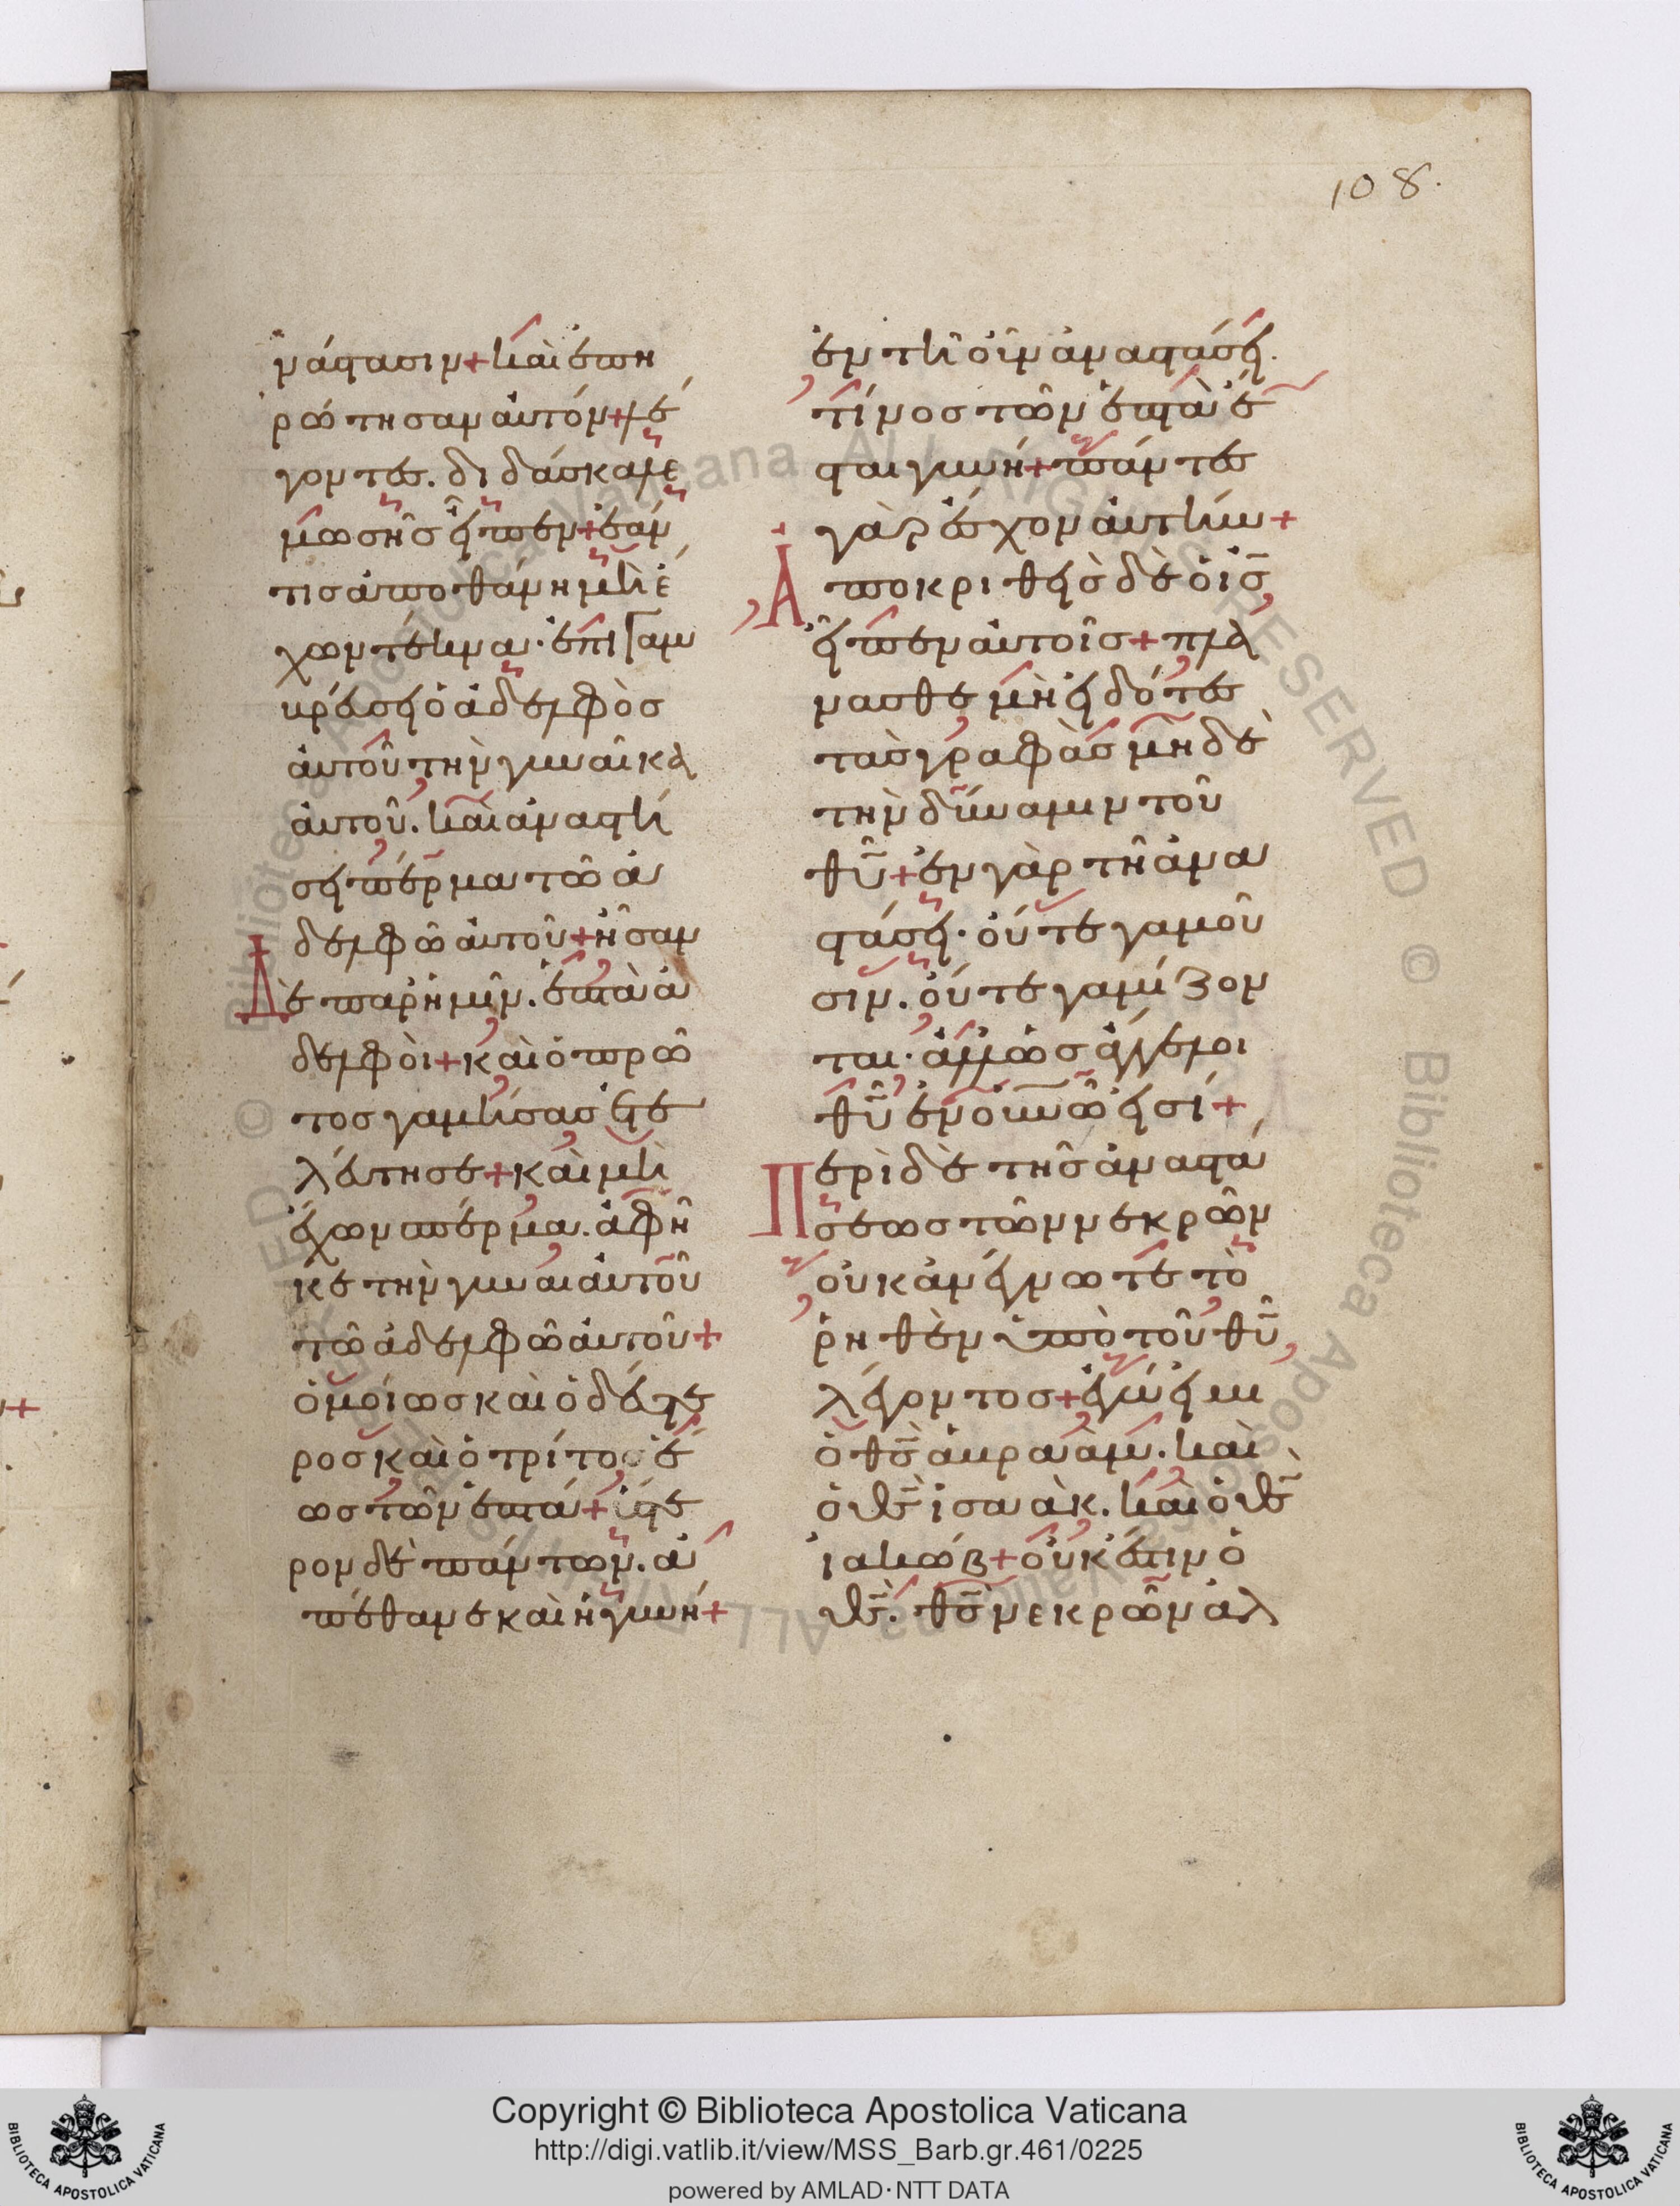 108.
νάστασιν + καὶ ἐπη
ρώτησαν αὐτόν + λέ
γοντες. διδάσκαλε
μωσῆς εἶπεν + ἐάν
τις ἀποθάνη μὴ έ
χων τέκνα. ἐπιγαμ
βρέυσει ὁ ἀδελφὸς
ἀυτοῦ τὴν γυναῖκα
ἀυτοῦ. καὶ ἀναστή
σει σπέρμα τῶ ἀ
δελφῶ ἀυτοῦ + ἦσαν
Δὲ παρ ἡμῖν. ἑπτὰ ἀ
δελφοὶ + καὶ ὁ πρῶ
τος γαμήσας ἐτε
λέυτησε + καὶ μὴ
ἔχων σπέρμα. ἀφῆ
κε τὴν γυναι αυτοῦ
τῶ ἀδελφῶ ἀυτοῦ +
ὁμοίως καὶ ὁ δέυτε
ρος καὶ ὁ τρίτος ἕ
ως τῶν ἑπτά + ὕστε
ρον δὲ πάντων. ἀ
πέθανε καὶ ἡ γυνή +
ἐν τῆ οὖν ἀναστάσει.
τίνος τῶν ἑπτὰ ἔ
σται γυνή + πάντες
γὰρ ἔσχον ἀυτήν +
Ἀποκριθεὶς δὲ ὁ ις
εἶπεν ἀυτοῖς + πλα
νασθε μὴ εἰδότες
τὰς γραφὰς μηδὲ
τὴν δύναμιν τοῦ
θυ + ἐν γὰρ τῆ ἀνα
στάσει. ούτε γαμοῦ
σιν. ούτε γαμίζον
ται. ἀλλ ὡς άγγελοι
θυ ἐν ουνω εἰσί +
Περὶ δὲ τῆς ἀναστά
σεως τῶν νεκρῶν
οὐκ ἀνέγνωτε τὸ
ῥηθὲν ὑπὸ τοῦ θυ
λέγοντος + ἐγώ εἰμι
ὁ θς ἀβραάμ. καὶ
ὁ θς ἰσαάκ. καὶ ὁ θς
ἰακώβ + οὐκ έστιν ὁ
θς. θς νεκρῶν ἀλ
Copyright © Biblioteca Apostolica Vaticana
http://digi.vatlib.it/view/MSS_Barb.gr.461/0225
powered by AMLAD·NTT DATA
BIBLIOTECA APOSTOLICA VATICANA
BIBLIOTECA APOSTOLICA VATICANA